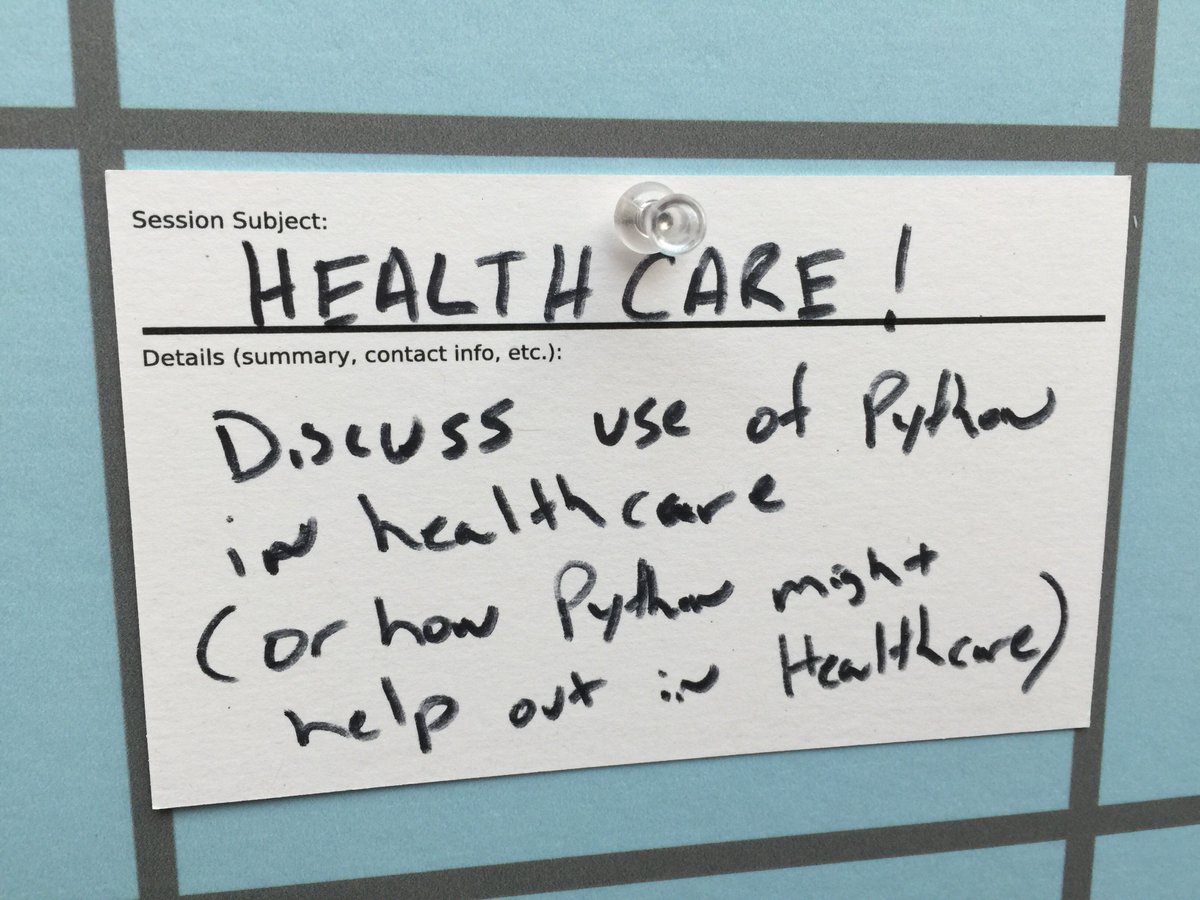 Session Subject:
HEALTHCARE!
Details (summary, contact info, etc.):
Discuss use of Python
in healthcare
(or how Python might
help out in Healthcare)